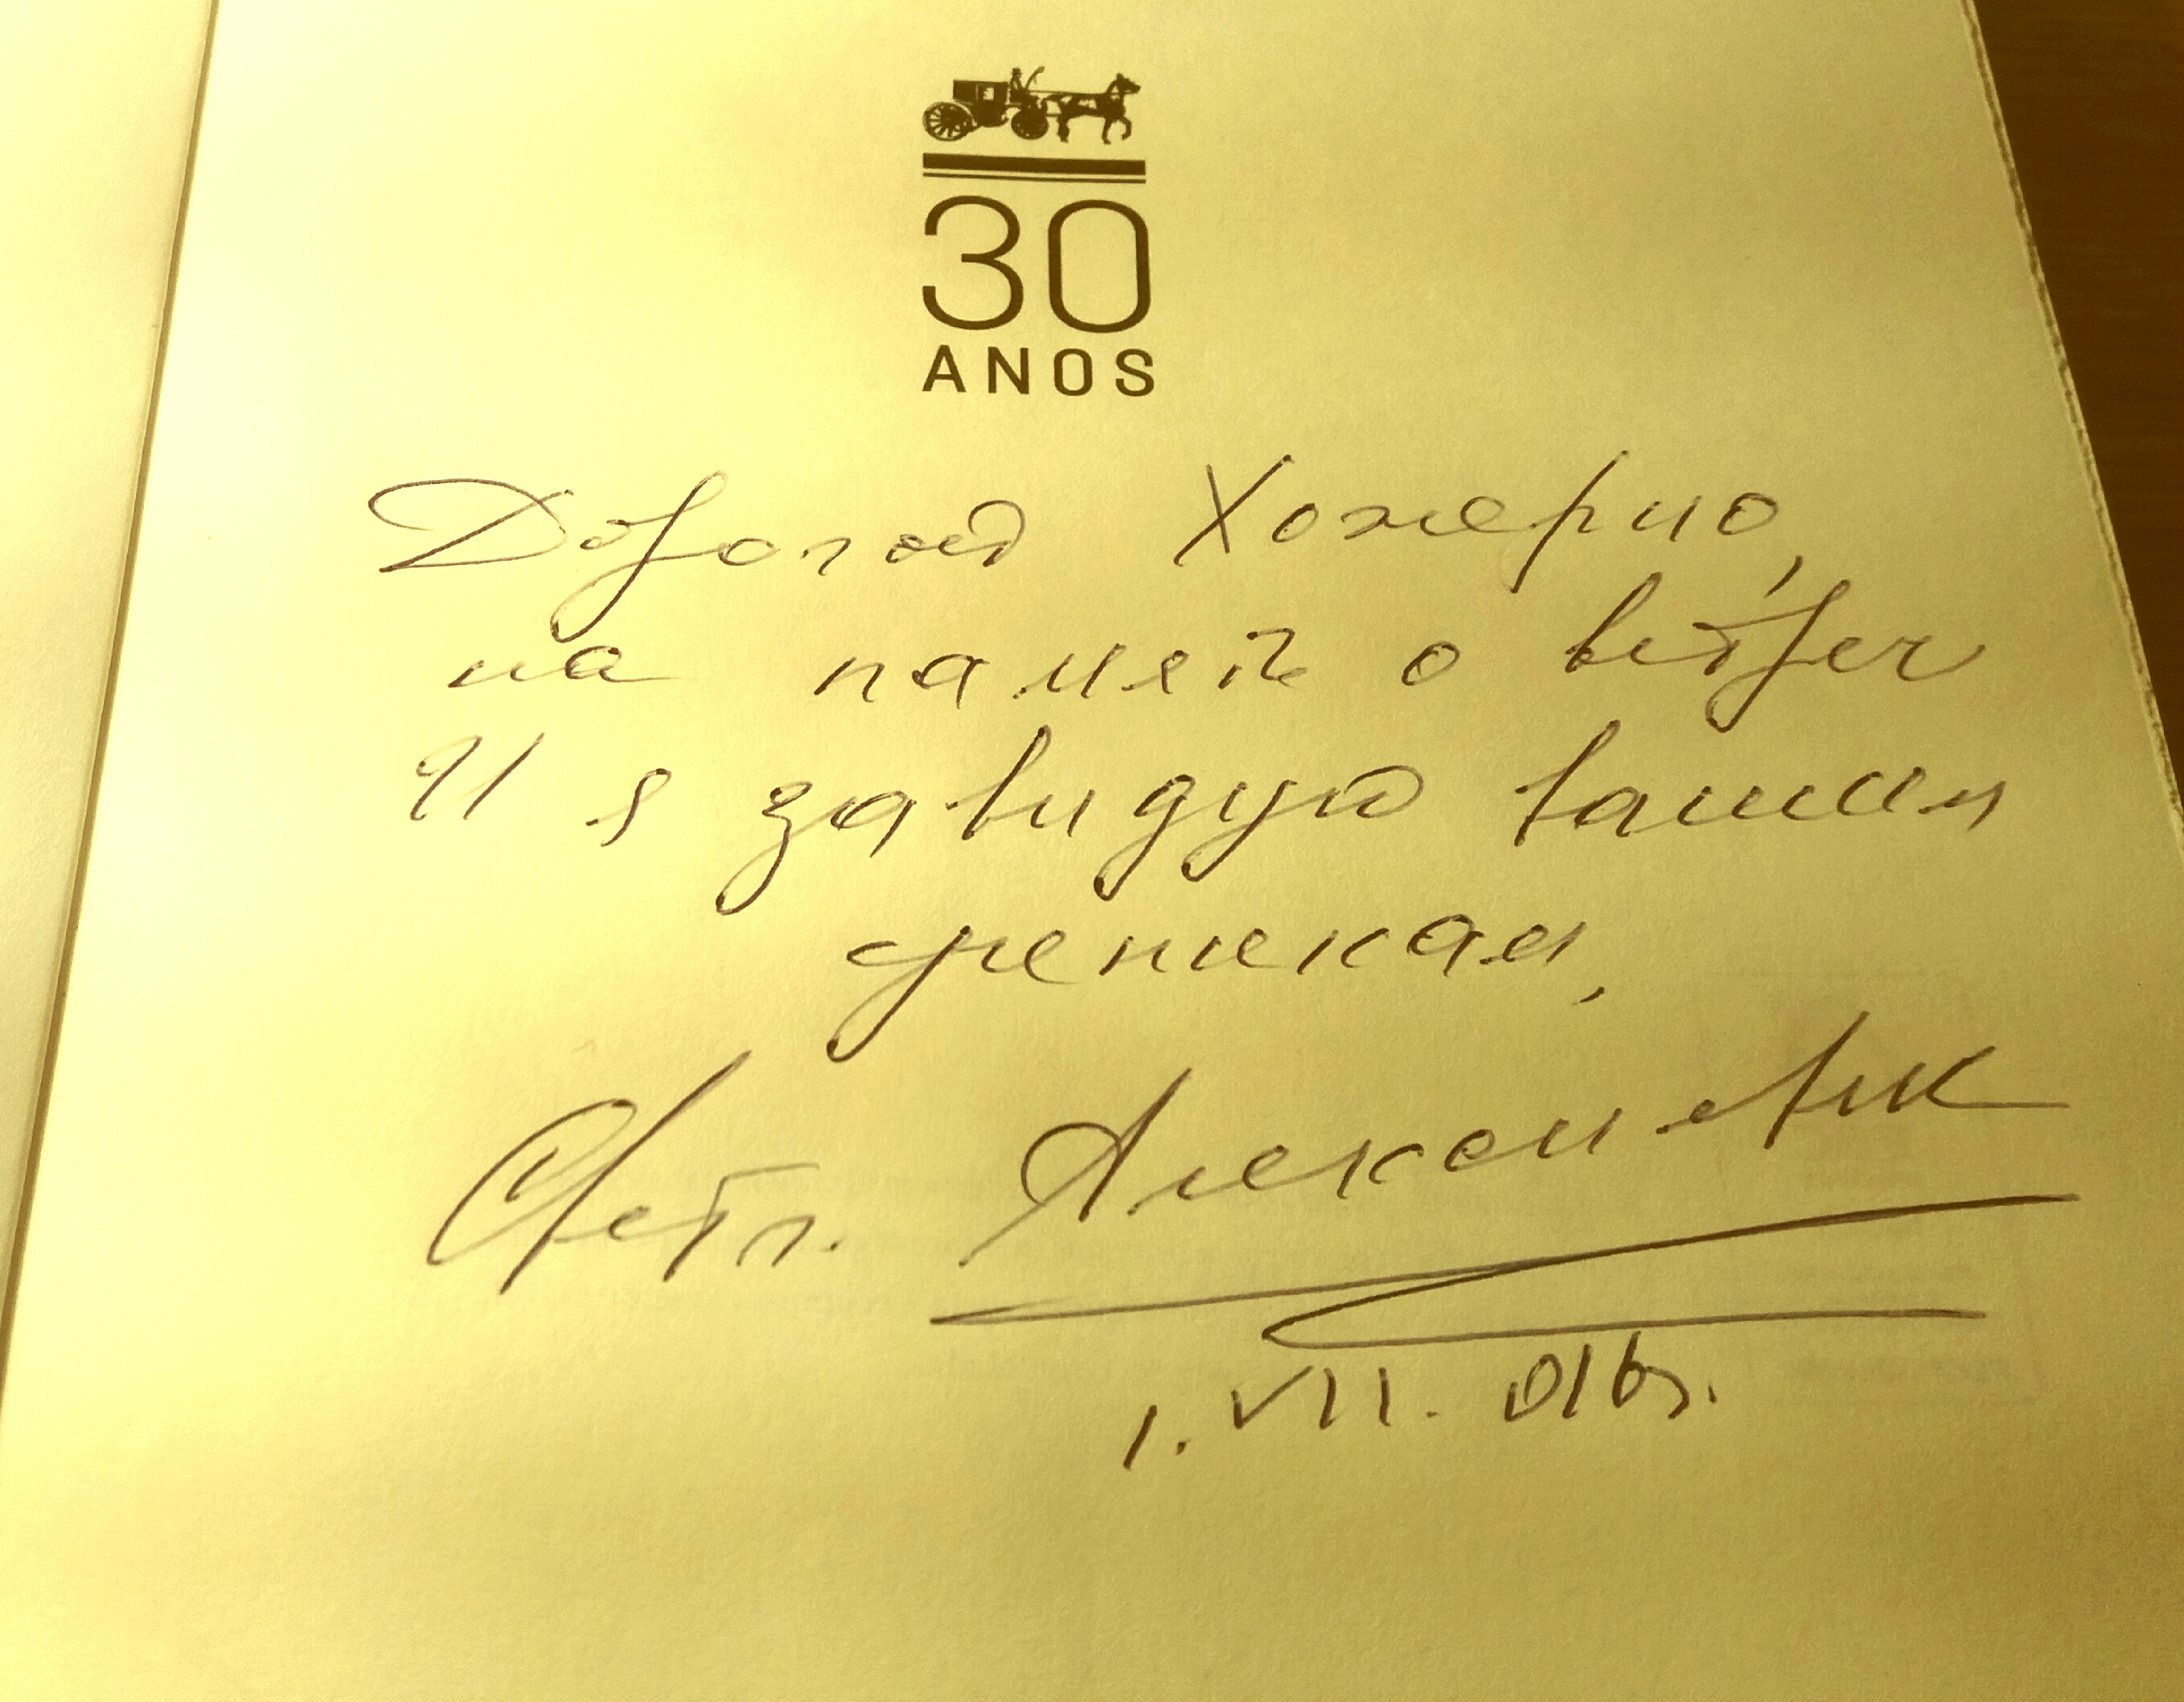 30
ANOS
Дорогой Хожерио,
на память о встрече
И я завидую вашим
ученикам,
Светл. Алексиевич
1.VII.016г.